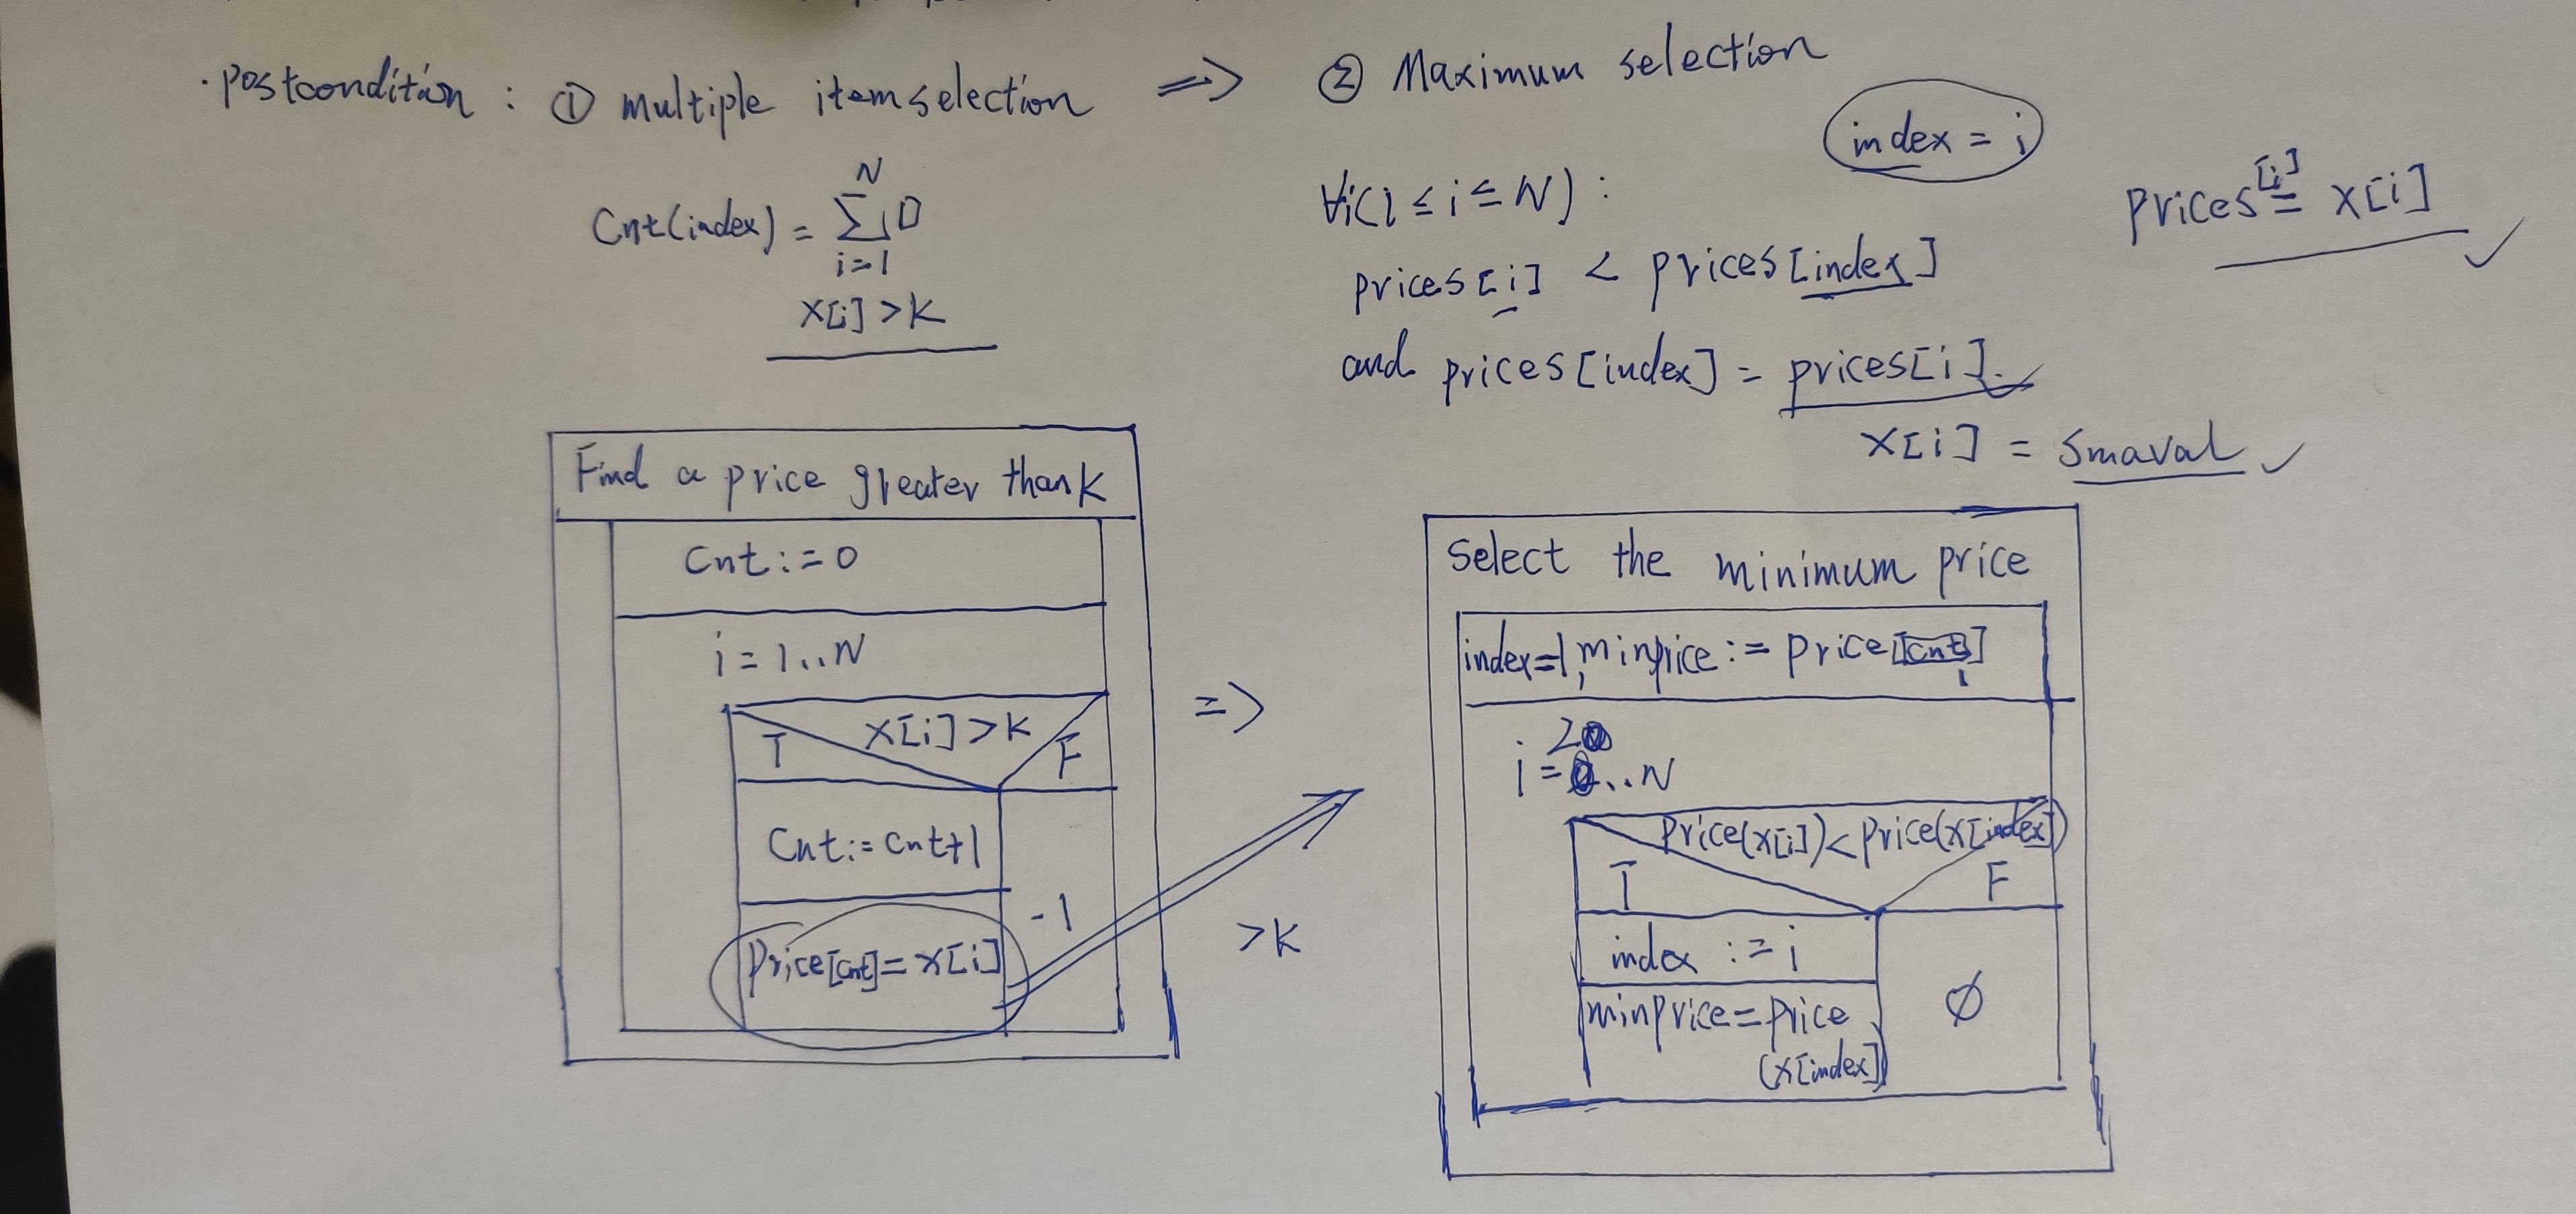 · Postcondition : ① multiple item selection => ② Maximum selection
index = i
Cnt(index) = N Σ i=1 0
x[i] > K
∀i(1 ≤ i ≤ N) :
prices[i] < prices[index]
and prices[index] = prices[i].
x[i] = Smaval ✓
Prices[i] = x[i] ✓
Find a price greater than K
Cnt := 0
i = 1..N
x[i] > K
T
F
Cnt := cnt+1
Price[cnt] = x[i]
-1
=>
>K
Select the minimum price
index=1, minprice := price[cnt]
1
2
i = ..N
Price(x[i]) < Price(x[index])
T
F
index := i
minprice = price
(x[index])
∅